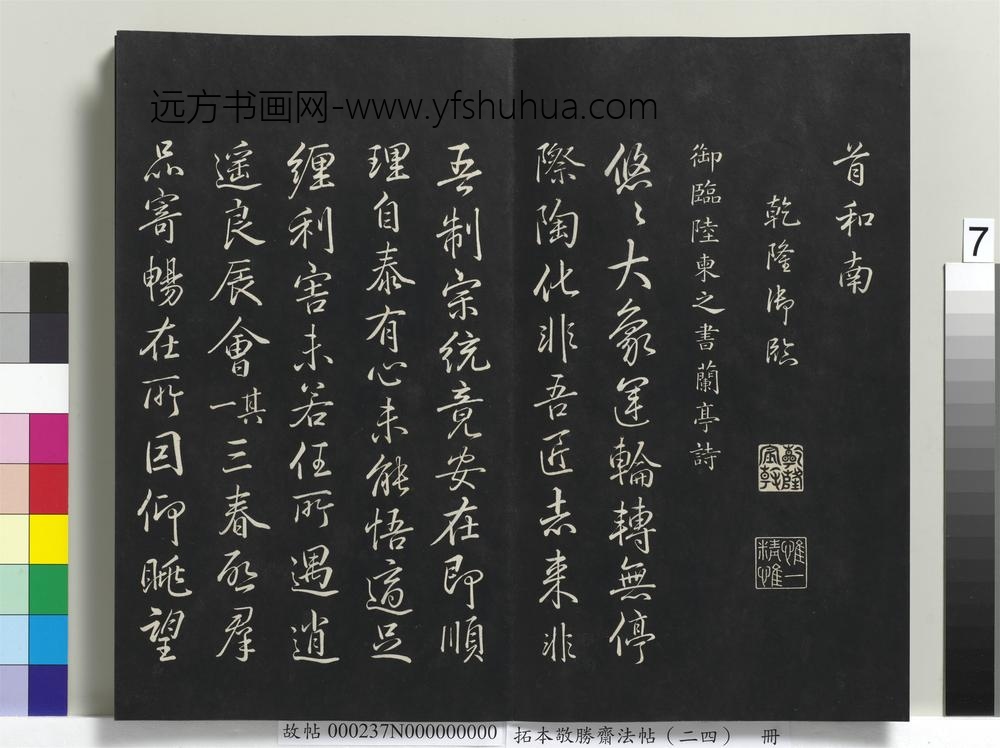 远方书画网-www.yfshuhua.com
首和南
乾隆御臨
乾隆宸翰
惟精惟一
御臨陸柬之書蘭亭詩
悠〻大象運輪轉無停
際陶化非吾匠去來非
吾制宗統竟安在即順
理自泰有心未能悟適足
纏利害未若任所遇逍
遥良辰會其一三春啓羣
品寄暢在所因仰眺望
7
故帖 000237N000000000 拓本敬勝齋法帖（二四） 冊